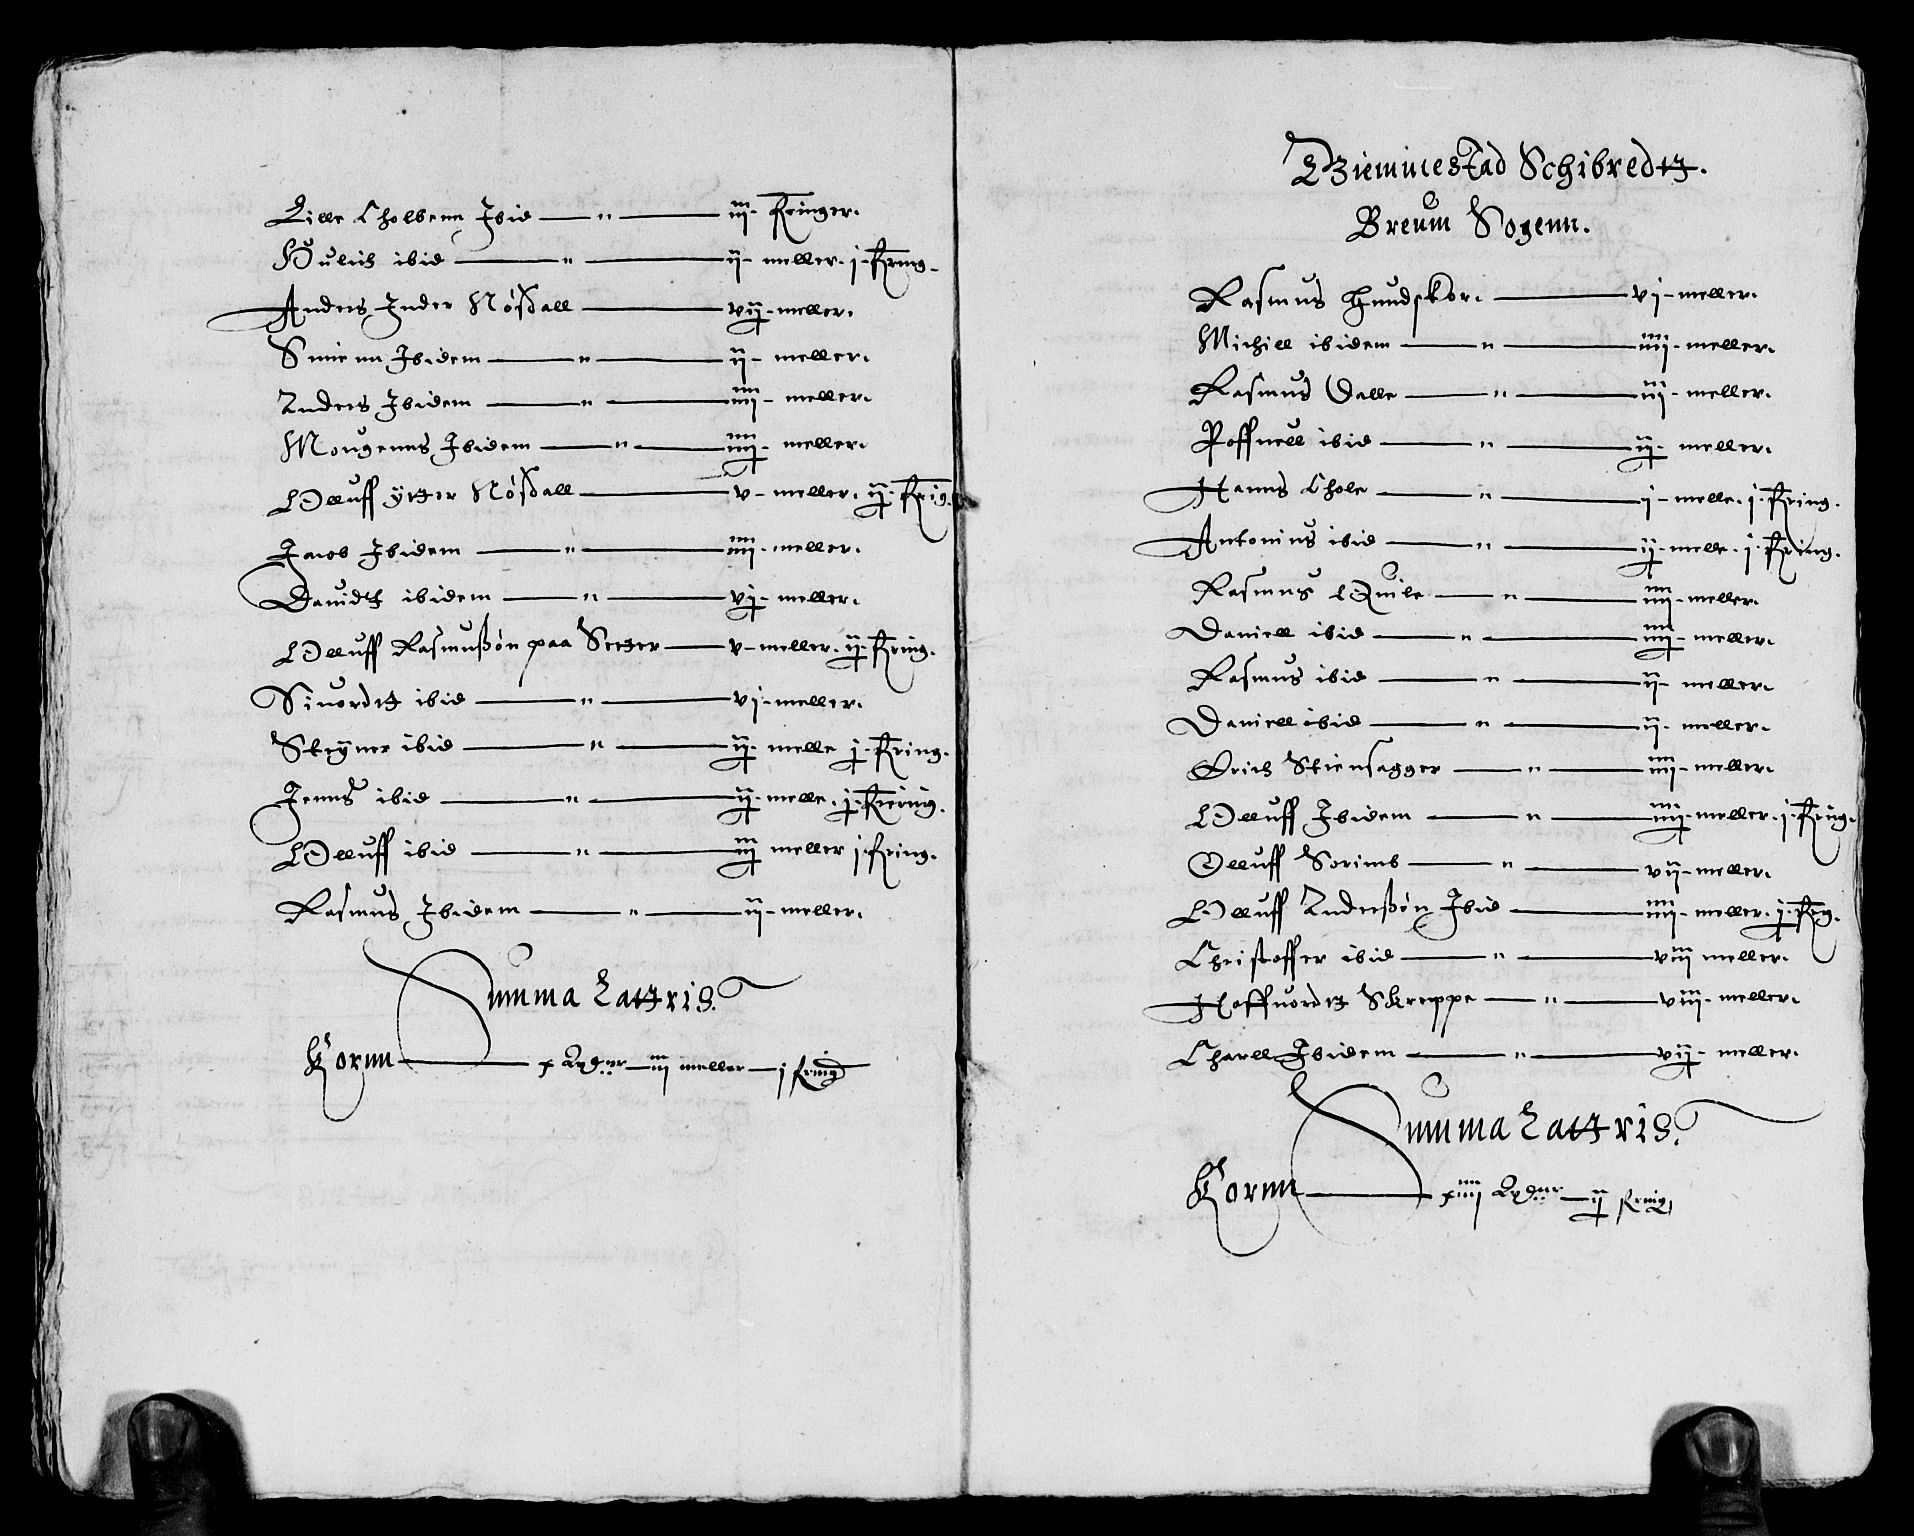 Lille Cholbenn Ibid — " — iij. Kringer.
Gulich ibid — " — ij- meller. j. Kring.
Anders Inder Nøsdall — vij- meller.
Suienn Ibidem — " — ij- meller.
Anders Ibidem — " — iiij- meller.
Mougenns Ibidem — " — iiij- meller.
Olluff ytter Nøsdall — v- meller. ij. Kring.
Jacob Ibidem — " — iiij- meller.
Dauidt ibidem — " — vj- meller.
Olluff Rasmusßøn paa Setter — v- meller. ij. Kring.
Siuordtt ibid — " — vj- meller.
Steyner ibid — " — ij- melle j- Kring.
Jenns ibid — " — ij- melle. j- Kring.
Olluff ibid — " — iij meller j. kring.
Rasmus Ibidem — " — ij- meller.
Summa Lattris.
Kornn — x — iij meller — j kring
Giemmestad Schibredtt.
Breum Sogenn.
Rasmus Hundskor. — vj- meller.
Michill ibidem — " — iiij- meller.
Rasmus Dalle — " — iij- meller.
Poffuell ibid — " — ij- meller.
Hanns Chole — " — j- melle. j. Kring.
Antonius ibid — " — ij- melle. j. Kring.
Rasmus — " — iiij- meller.
Daniell ibid — " — iiij- meller.
Rasmus ibid — " — ij- meller.
Daniell ibid — " — ij- meller.
Erich Stiensagger — " — iiij- meller.
Olluff Ibidem — " — iiij- meller. j. Kring.
Olluff Sorims — " — vij- meller.
Olluff Anderßøn Ibid — iiij- meller. j. Kring.
Christoffer ibid — " — viij meller.
Hoffuordtt Skreppe — " — viij- meller.
Charll Ibidem — " — vij- meller.
Summa Lattris.
Kornn — xiiij — ij kring